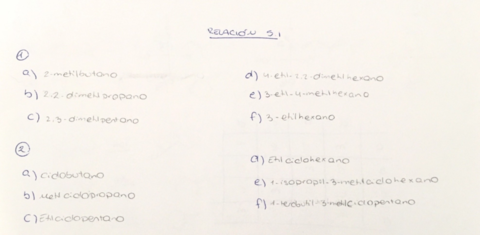 RELACIÓN 5.1
①
a) 2-metilbutano
b) 2.2-dimetilpropano
c) 2.3-dimetilpentano
d) 4-etil-2.2-dimetilhexano
e) 3-etil-4-metilhexano
f) 3-etilhexano
②
a) ciclobutano
b) Metilciclopropano
c) Etilciclopentano
d) Etilciclohexano
e) 1-isopropil-3-metilciclohexano
f) 1-tercbutil-3-metilciclopentano